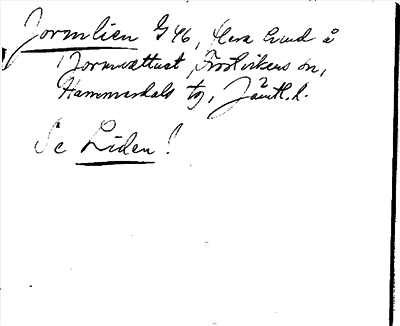 Jormlien G 46, flera Evud å
Jormvattnet, Frostvikens sn,
Hammerdals tg, Jämtl. l.
Se Liden!